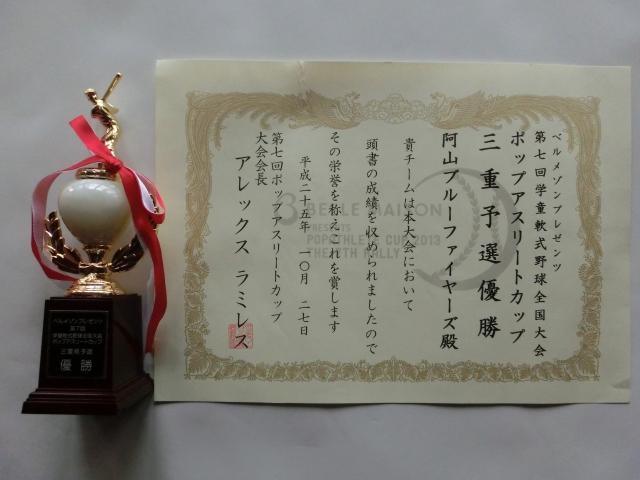 ベルメゾンプレゼンツ
第七回学童軟式野球全国大会
ポップアスリートカップ
三重予選優勝
阿山ブルーファイヤーズ殿
貴チームは本大会において
頭書の成績を収められましたので
その栄誉を称えこれを賞します
平成二十五年 一〇月 二七日
第七回ポップアスリートカップ
大会会長
アレックス ラミレス
BELLE MAISON
PRESENTS
POPATHLETE CUP 2013
ベルメゾンプレゼンツ
第7回
学童軟式野球全国大会
ポップアスリートカップ
三重県予選
優勝